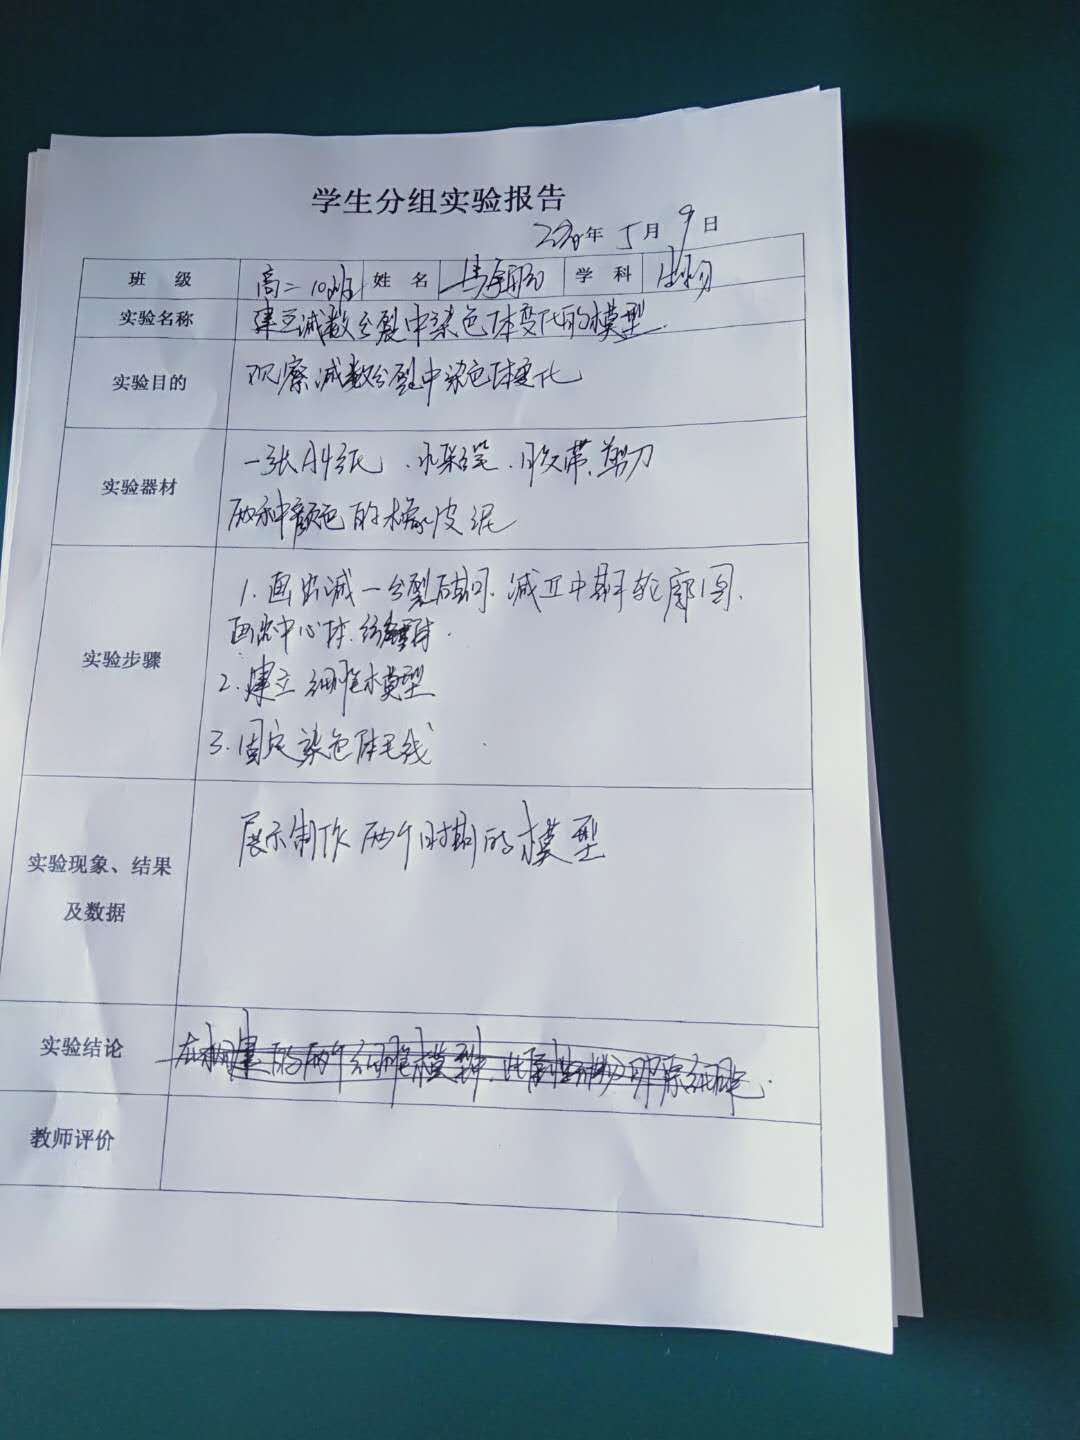 学生分组实验报告
年 5月9日
班级 高二10班 姓名 学科 生物
实验名称 建立减数分裂中染色体变化的模型.
实验目的 观察减数分裂中染色体变化
实验器材 一张A4纸、水彩笔、胶带、剪刀
两种颜色的橡皮泥
实验步骤 1.画出减一分裂后期、减Ⅱ中期轮廓图、
画出中心体、纺锤体.
2.建立细胞模型
3.固定染色体毛线
实验现象、结果 展示制作两个时期的模型
及数据
实验结论 在构建的两个细胞模型中,
教师评价